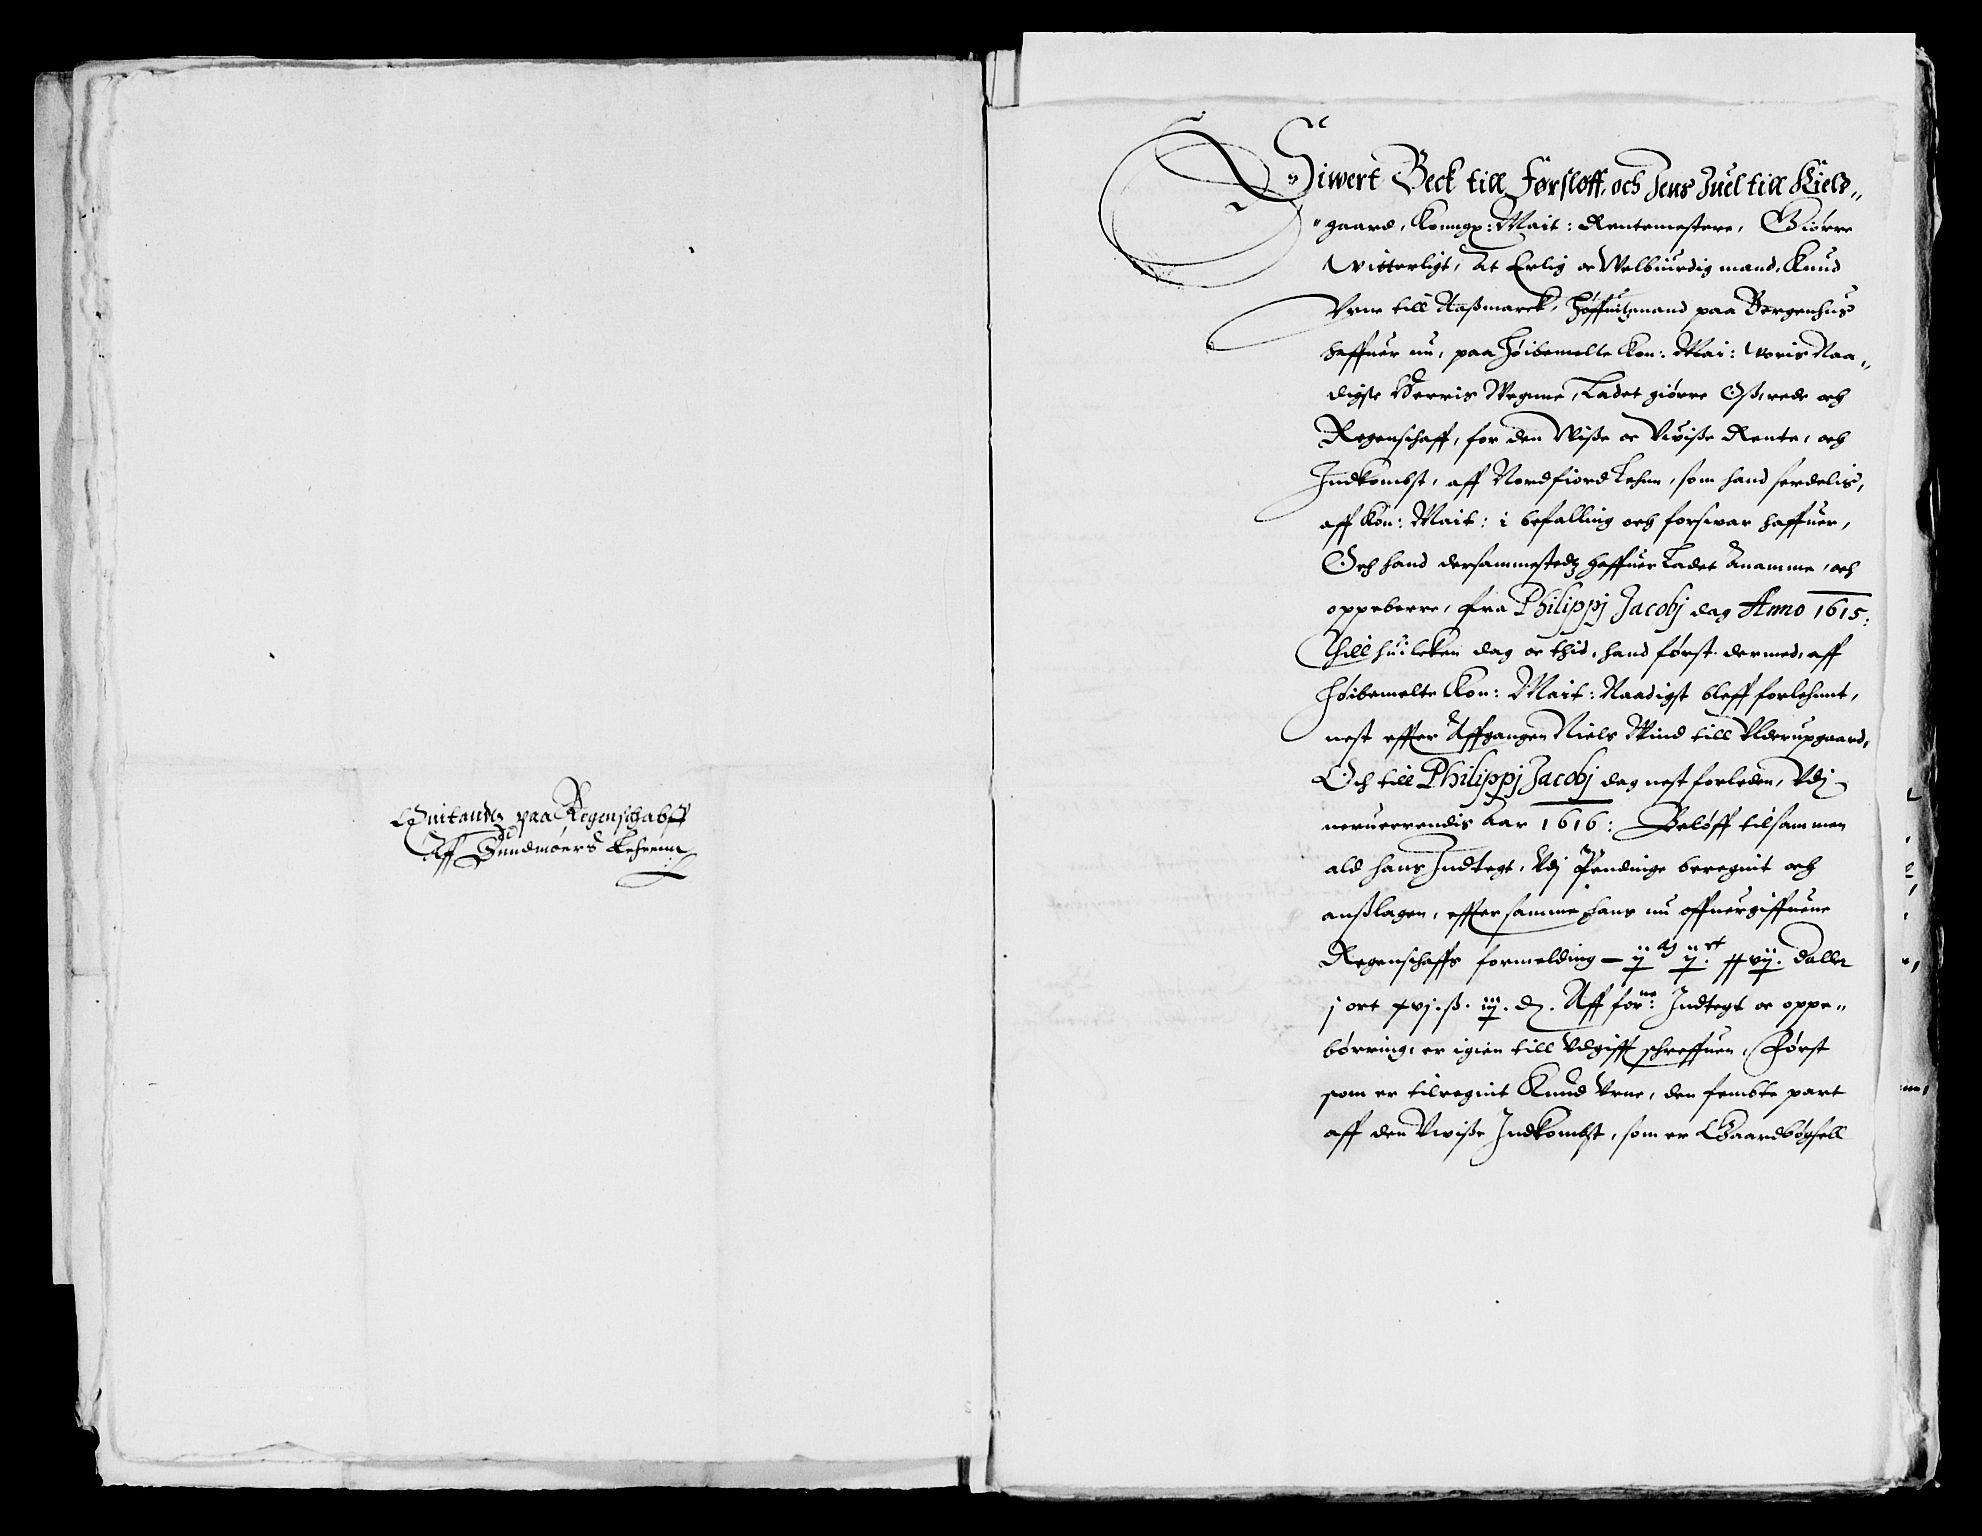 Quitandtz paa Regenschabff
Aff Sundmøers Lehenn
Siwert Beck till Førsløff, och Jens Juel till Kield„
„gaard, Konngx: Mait: Rentemestere, Giörre
Witterligt, At Erlig oc Welbiurdig mand, Knud
Vrne till Aaßmarck, Höffuitzmand paa Bergenhus
haffuer nu, paa Höibemelte Kon: Mai: woris Naa„
digste Herris Wegnne, Ladet giörre Ostirede och
Regenschaff, for den Wiße oc Vwiße Rente, och
Indkombst, aff Nordfiord Lehnn, som hand serdelis,
aff Kon: Mait: i befalling och forswar haffuer,
Och hand dersammestedtz haffuer Ladet Anamme, och
oppeberre, fra Philippj Jacobj dag Anno 1615:
Thill huileken dag oc thid, hand først dermed, aff
Höibemelte Kon: Mait: Naadigst bleff forlehnnt,
nest effter Affgangen Niels Wind till Ullerupgaard,
Och till Philippj Jacobj dag nest forleden, Vdj
neruerrendis Aar 1616: Beløff tilsammen
ald hans Indtegt, Vdj Pendinge beregnit och
anßlagen, effter samme hans nu offuergiffuene
Regenschaffs formelding — ij M ij Ct xxvij. daller
j ort xvj. ß. iij. d. Aff forne: Indtegt oc oppe„
börring, er igien till Vdgifft schreffuen, Først
som er tilregnit Knud Vrne, den fembte part
aff den Vwiße Indkombst, som er Gaardbögsell